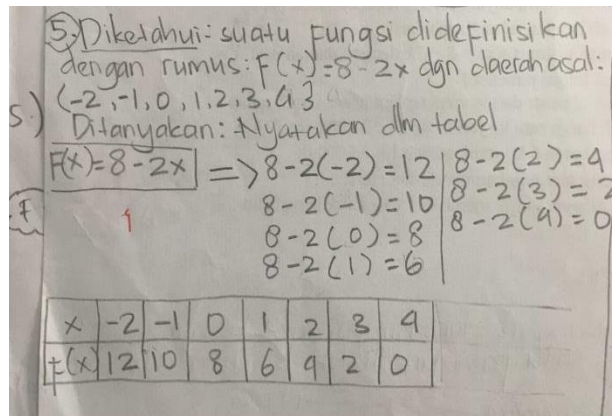 5. Diketahui: suatu Fungsi didefinisikan
dengan rumus: F(x) = 8 - 2x dgn daerah asal:
{-2, -1, 0, 1, 2, 3, 4}
5.) Ditanyakan: Nyatakan dlm tabel
F(x) = 8 - 2x => 8 - 2(-2) = 12 | 8 - 2(2) = 4
8 - 2(-1) = 10 | 8 - 2(3) = 2
8 - 2(0) = 8 | 8 - 2(4) = 0
8 - 2(1) = 6
x | -2 | -1 | 0 | 1 | 2 | 3 | 4
f(x) | 12 | 10 | 8 | 6 | 4 | 2 | 0